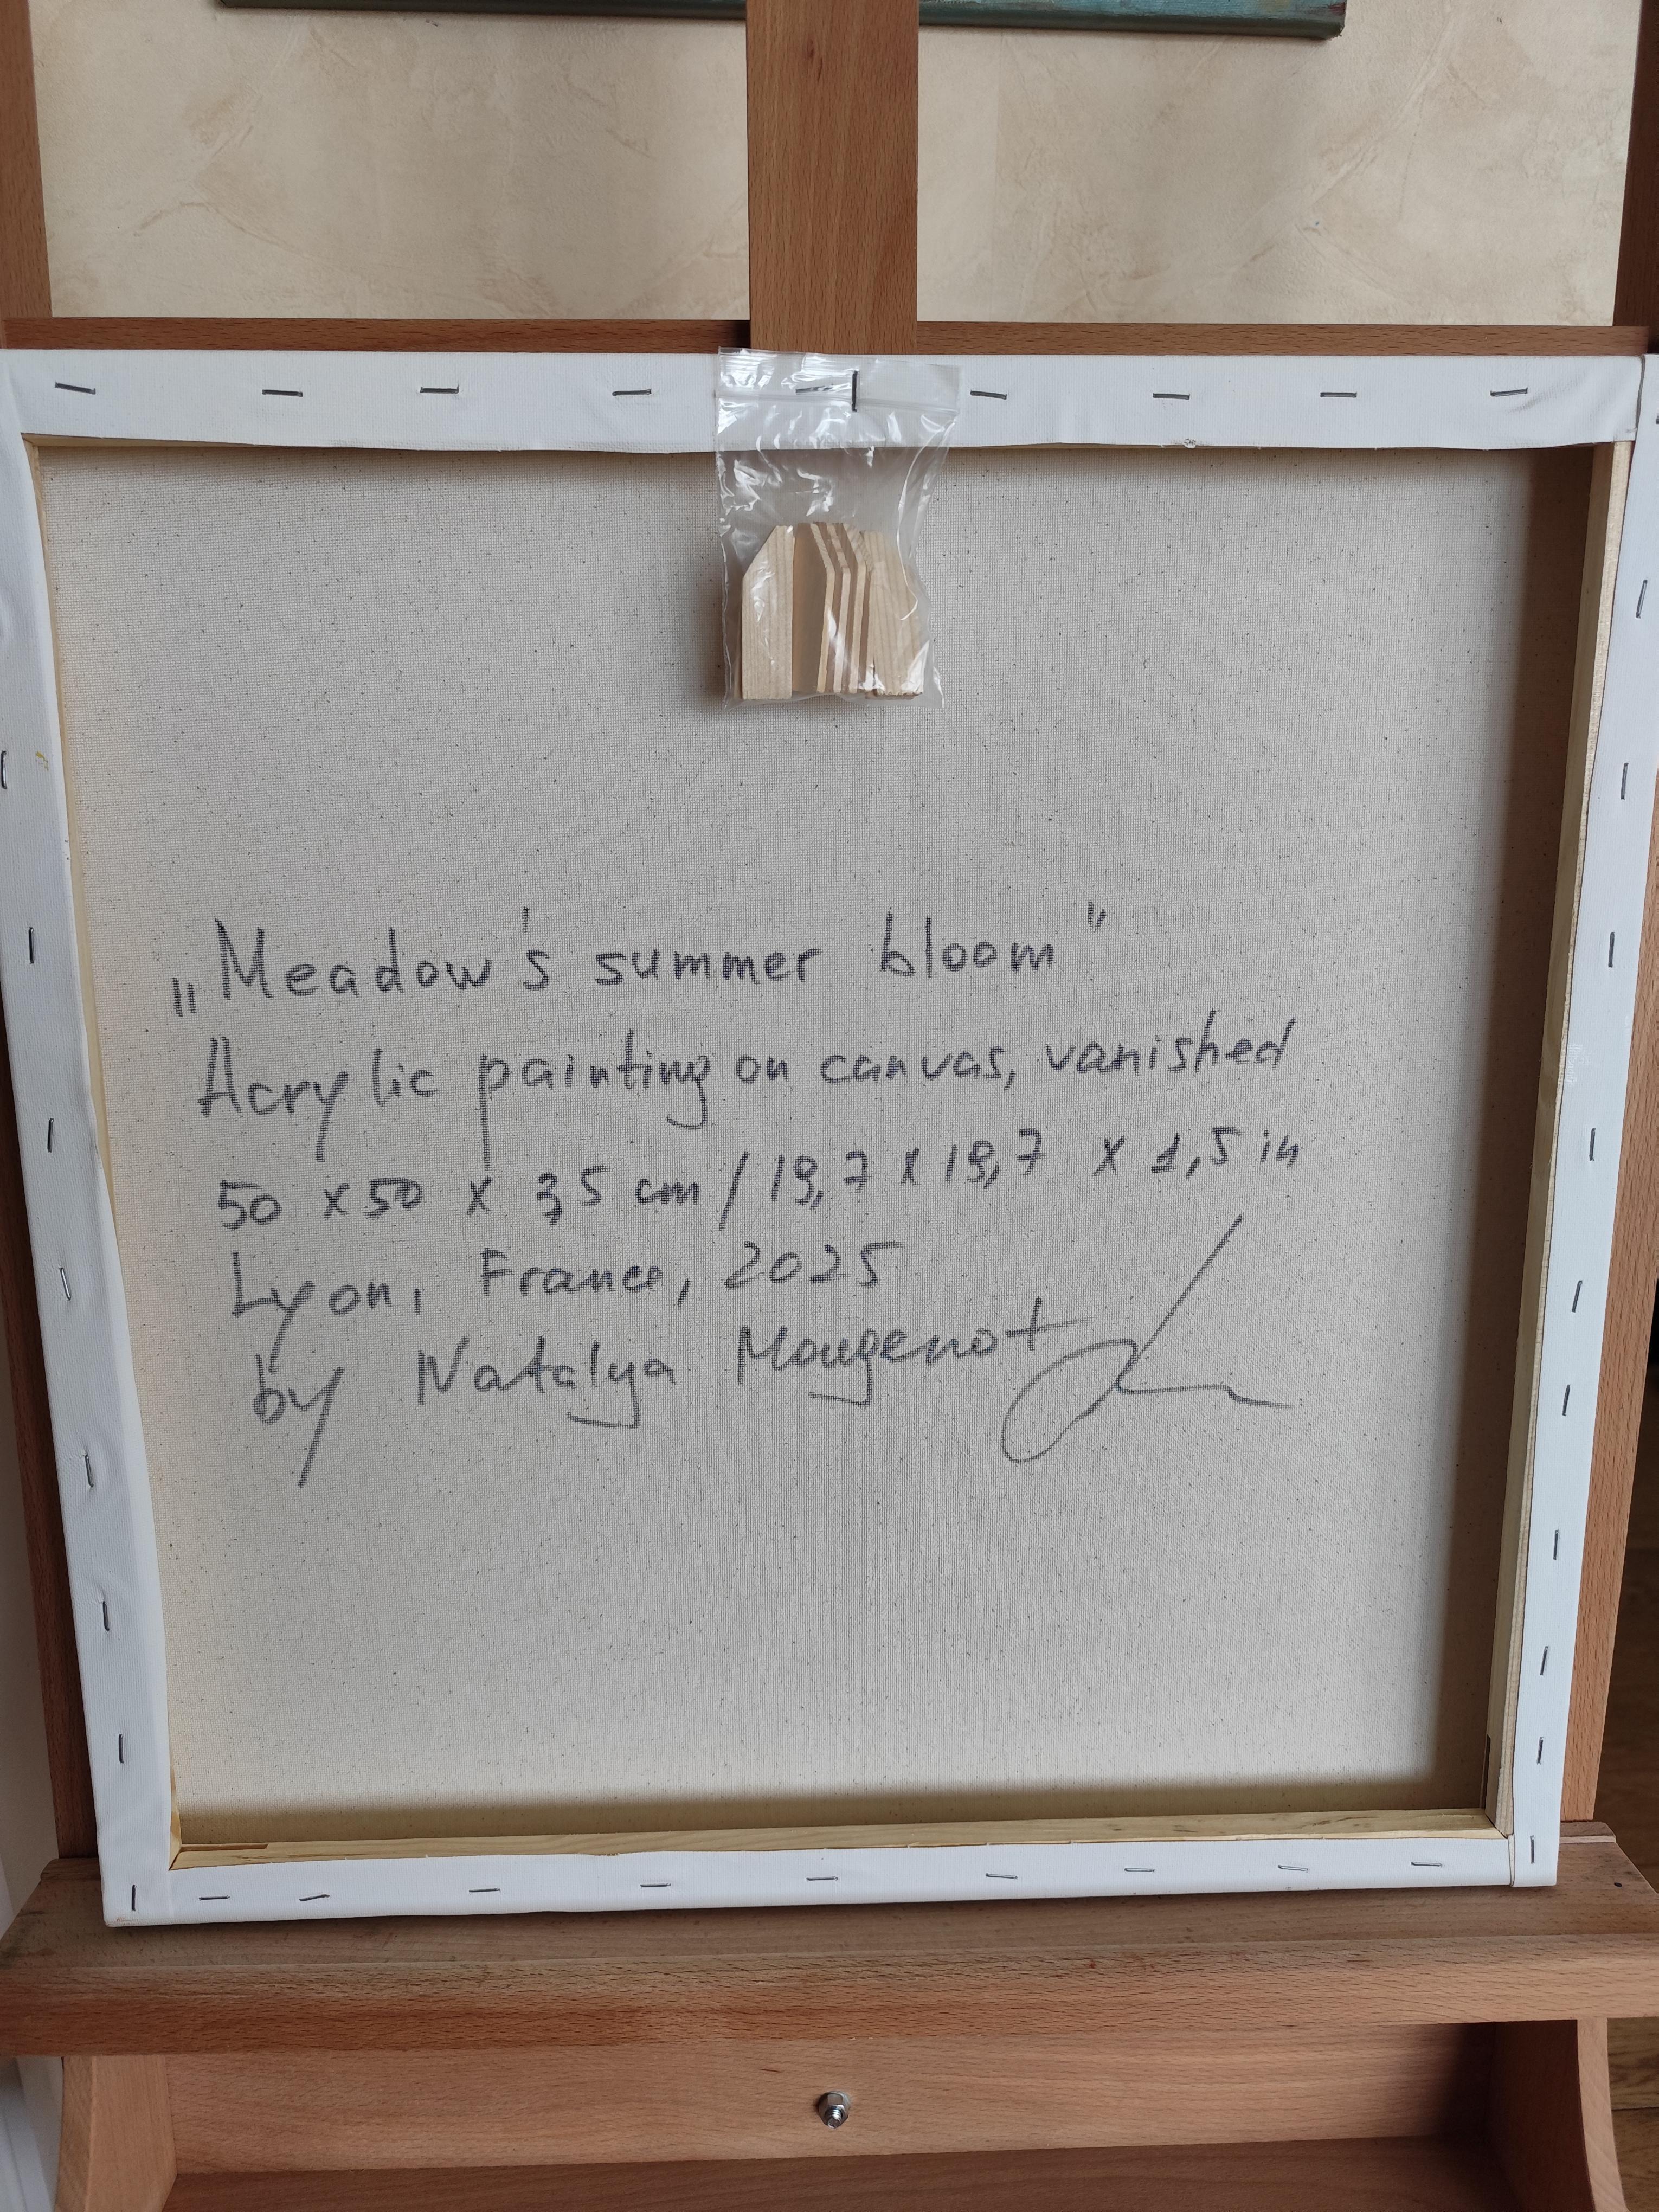 „Meadow's summer bloom"
Acrylic painting on canvas, vanished
50 x 50 x 3,5 cm / 19,7 x 19,7 x 1,5 in
Lyon, France, 2025
by Natalya Mougenot